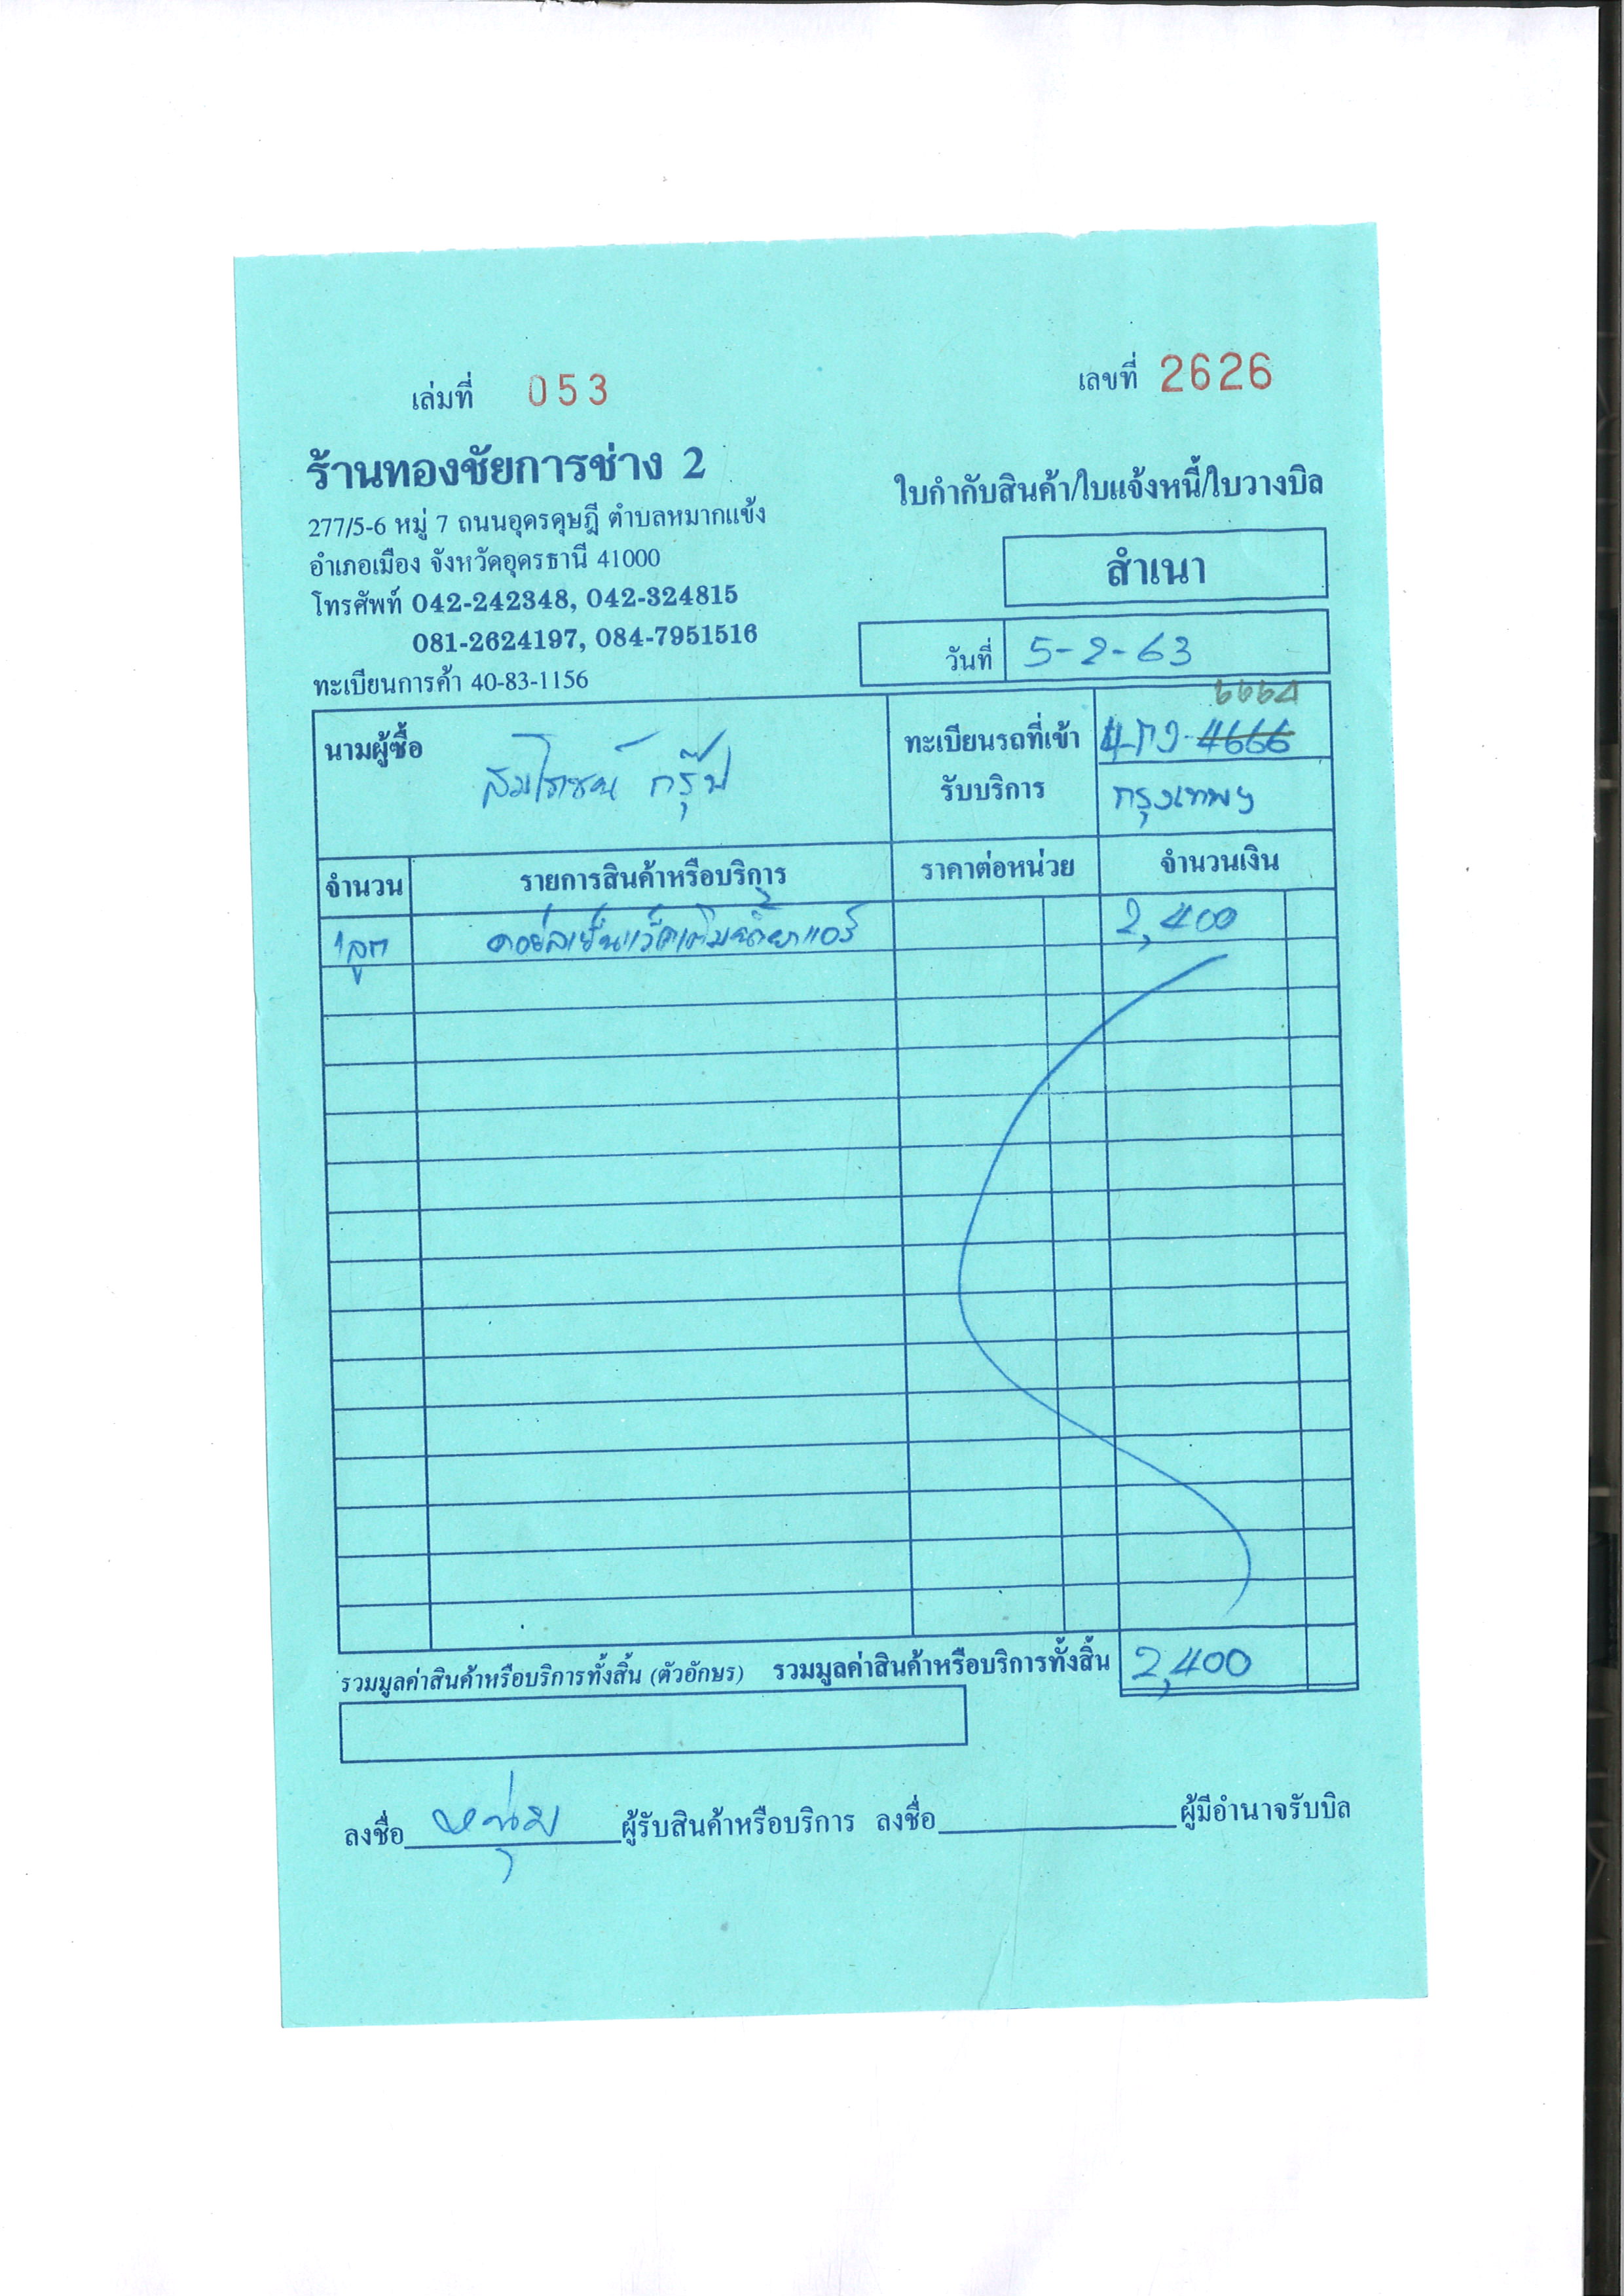 เล่มที่ 053
เลขที่ 2626
ร้านทองชัยการช่าง 2
277/5-6 หมู่ 7 ถนนอุดรดุษฎี ตำบลหมากแข้ง
อำเภอเมือง จังหวัดอุดรธานี 41000
โทรศัพท์ 042-242348, 042-324815
081-2624197, 084-7951516
ทะเบียนการค้า 40-83-1156
ใบกำกับสินค้า/ใบแจ้งหนี้/ใบวางบิล
สำเนา
วันที่ 5-2-63
นามผู้ซื้อ กรุ๊ป
ทะเบียนรถที่เข้า
รับบริการ
6664
4666
กรุงเทพฯ
จำนวน รายการสินค้าหรือบริการ ราคาต่อหน่วย จำนวนเงิน
1 ลูก คอยล์เย็น แว็ค เติมน้ำยาแอร์ 2,400
รวมมูลค่าสินค้าหรือบริการทั้งสิ้น (ตัวอักษร) รวมมูลค่าสินค้าหรือบริการทั้งสิ้น 2,400
ลงชื่อ หนุ่ม ผู้รับสินค้าหรือบริการ ลงชื่อ ผู้มีอำนาจรับบิล